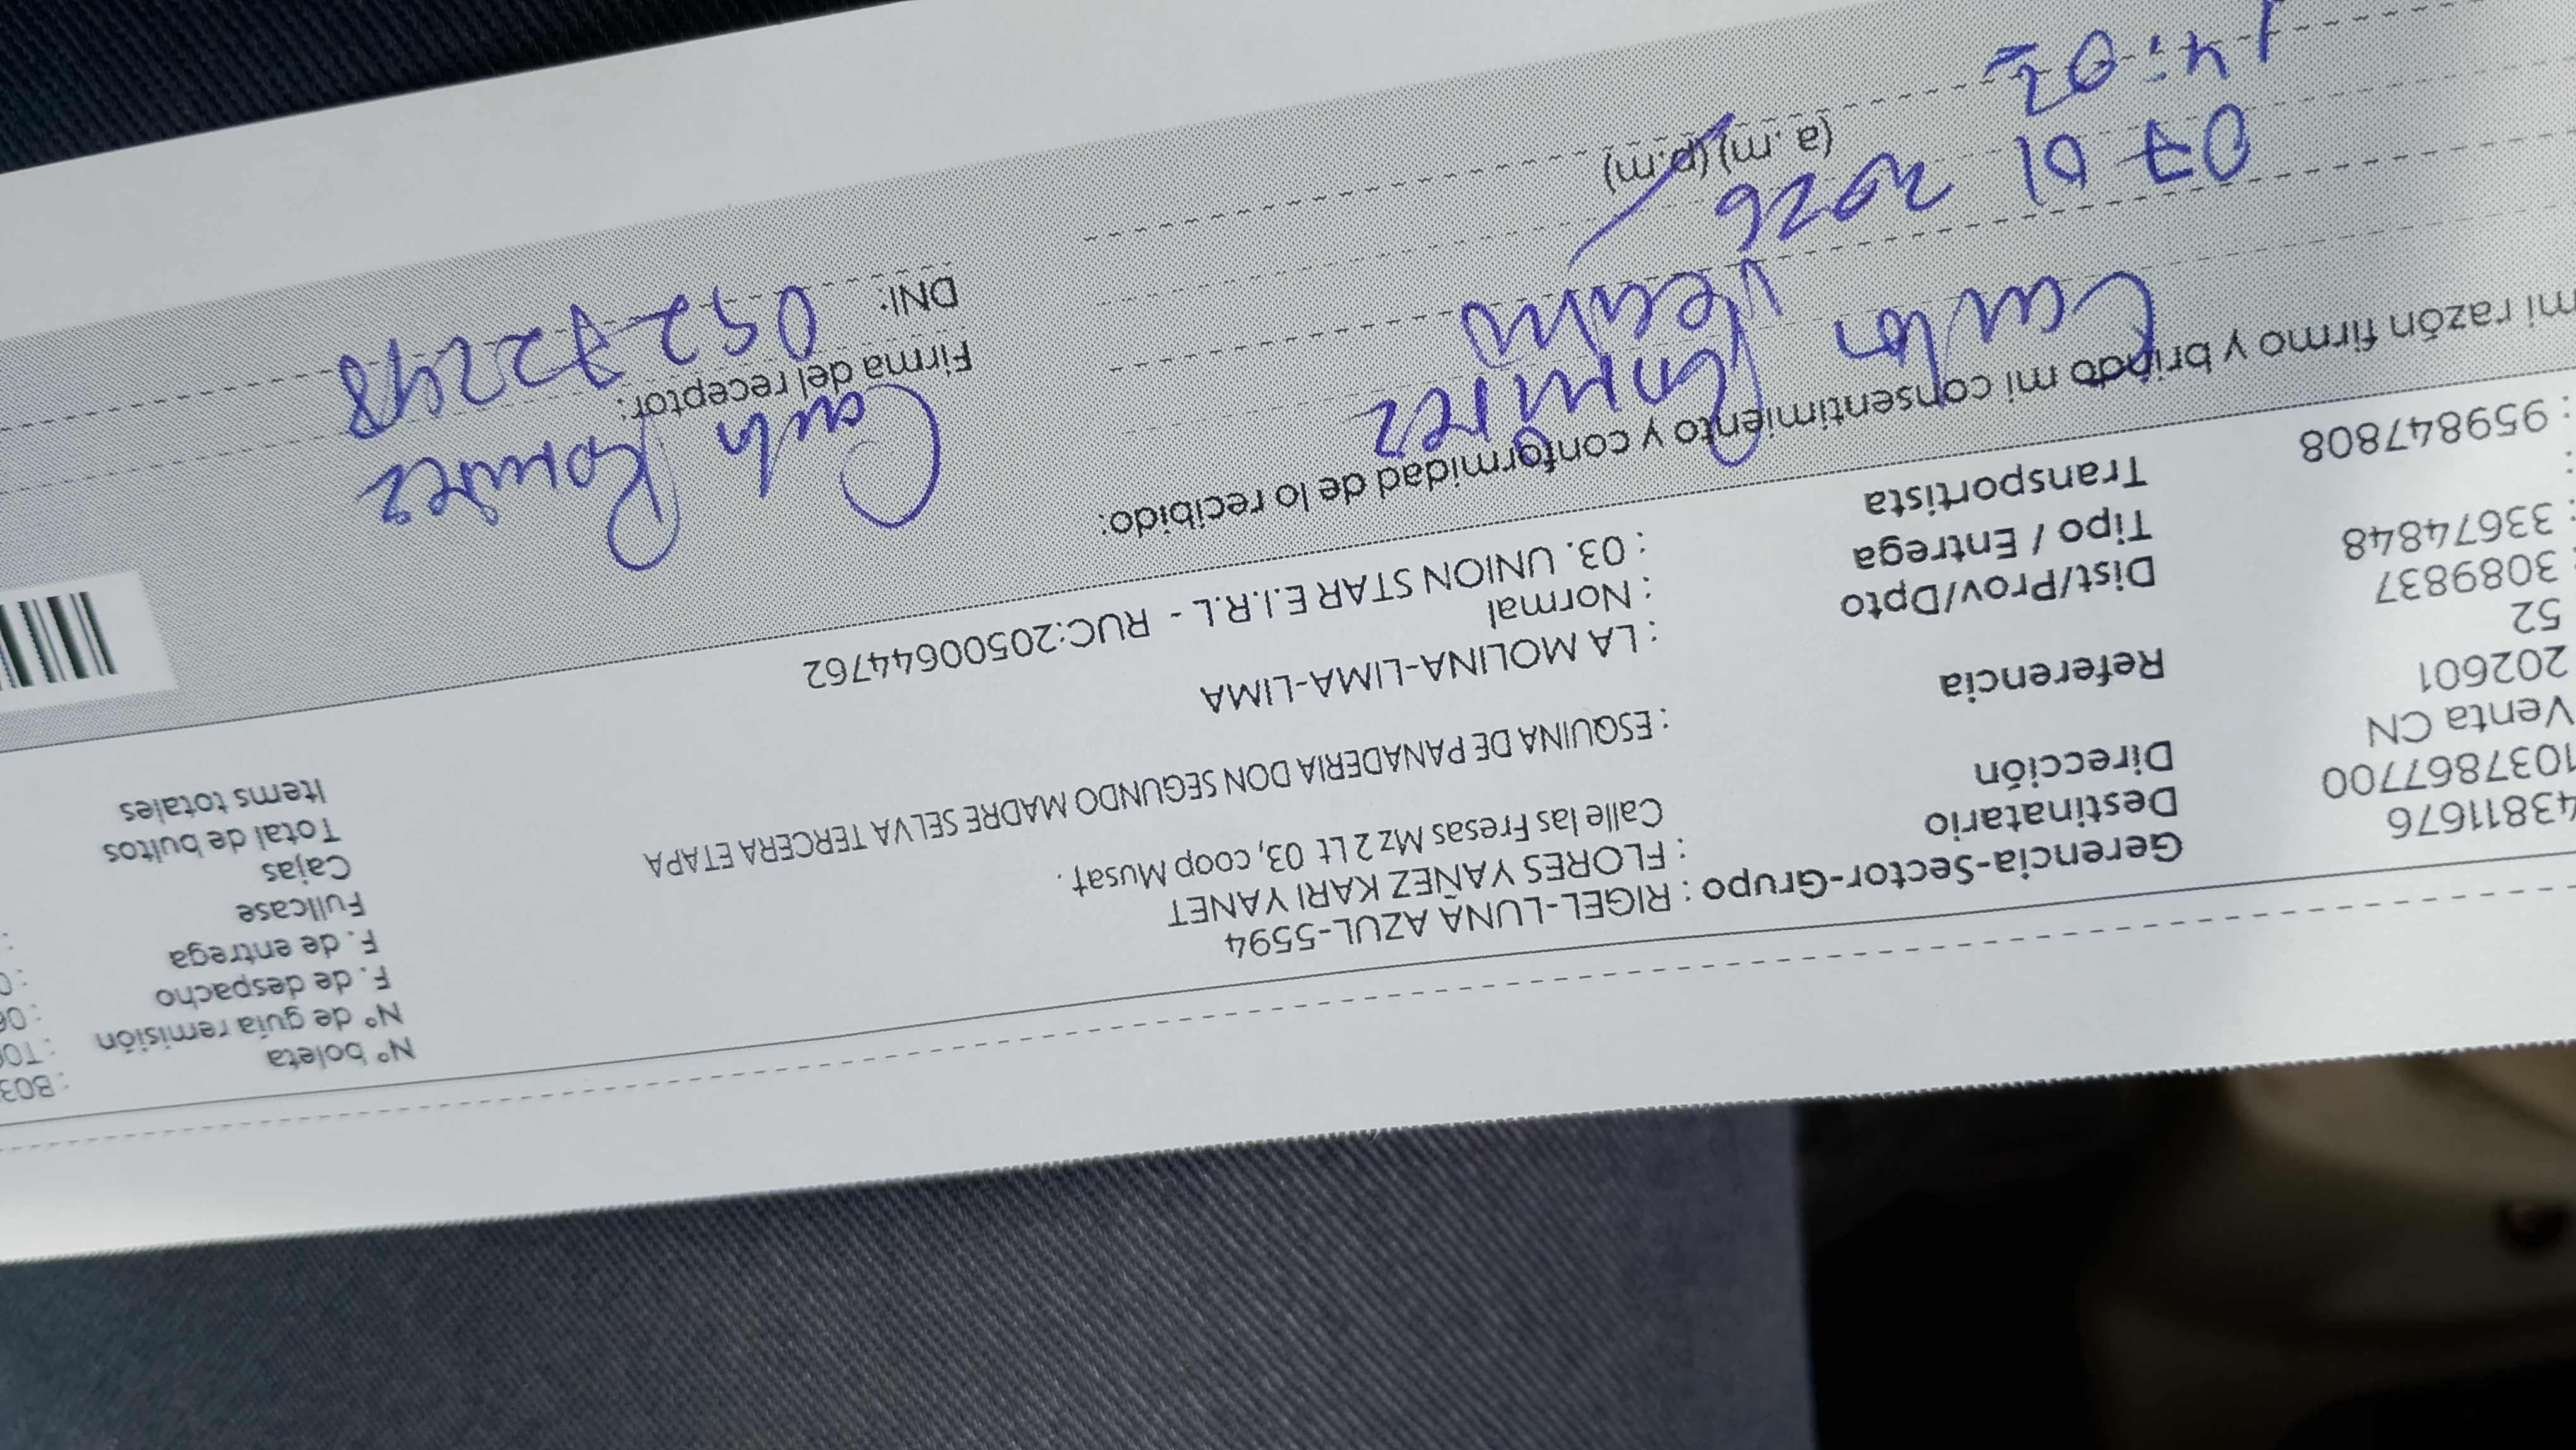 Nº boleta : B03
Nº de guía remisión : T00
F. de despacho : 06
F. de entrega : 0
Fullcase :
Cajas
Total de bultos
Items totales
Gerencia-Sector-Grupo : RIGEL-LUNA AZUL-5594
Destinatario : FLORES YAÑEZ KARI YANET
Dirección Calle las Fresas Mz 2 Lt 03, coop Musat .
Referencia : ESQUINA DE PANADERIA DON SEGUNDO MADRE SELVA TERCERA ETAPA
Dist/Prov/Dpto : LA MOLINA-LIMA-LIMA
Tipo / Entrega : Normal
Transportista : 03. UNION STAR E.I.R.L - RUC:20500644762
43811676
1037867700
Venta CN
202601
52
: 3089837
: 33674848
:
: 959847808
mi razón firmo y brindo mi consentimiento y conformidad de lo recibido:
Carlos Ramirez
07 01 2026
14:02
(a.m) (p.m)
Carlos Ramirez
Firma del receptor:
DNI: 09272248